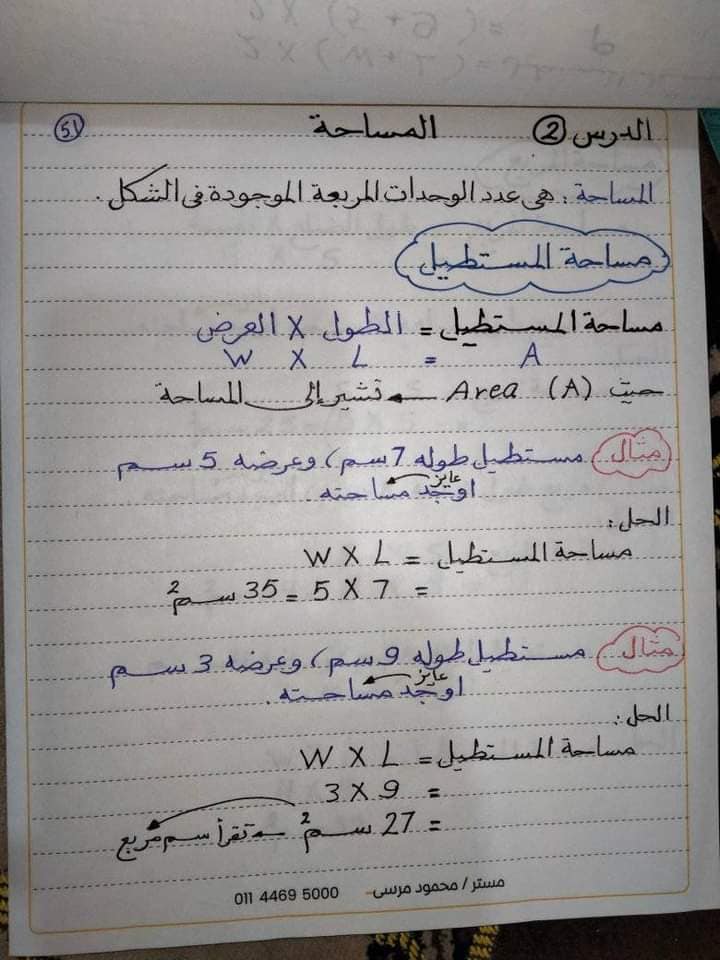 الدرس ② المساحة ⑤1
المساحة : هى عدد الوحدات المربعة الموجودة فى الشكل .
مساحة المستطيل
مساحة المستطيل = الطول X العرض
A = L X W
حيث Area (A) ← تشير إلى المساحة
مثال مستطيل طوله 7 سم ، وعرضه 5 سم
عايز
اوجد مساحته
الحل :
مساحة المستطيل = W X L
= 5 X 7 = 35 سم2
مثال مستطيل طوله 9 سم ، وعرضه 3 سم
عايز
اوجد مساحته .
الحل :
مساحة المستطيل = W X L
= 3 X 9
= 27 سم2 ← تقرأ سم مربع
مستر / محمود مرسى - 011 4469 5000